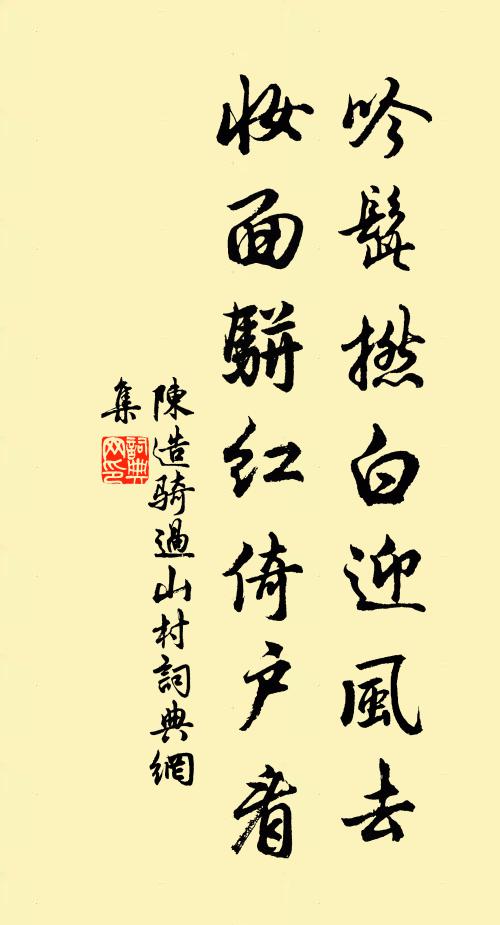 吟髭撚白迎風去
妝面駢紅倚户看
陳造骑過山村詞典網
集
詞典
网印